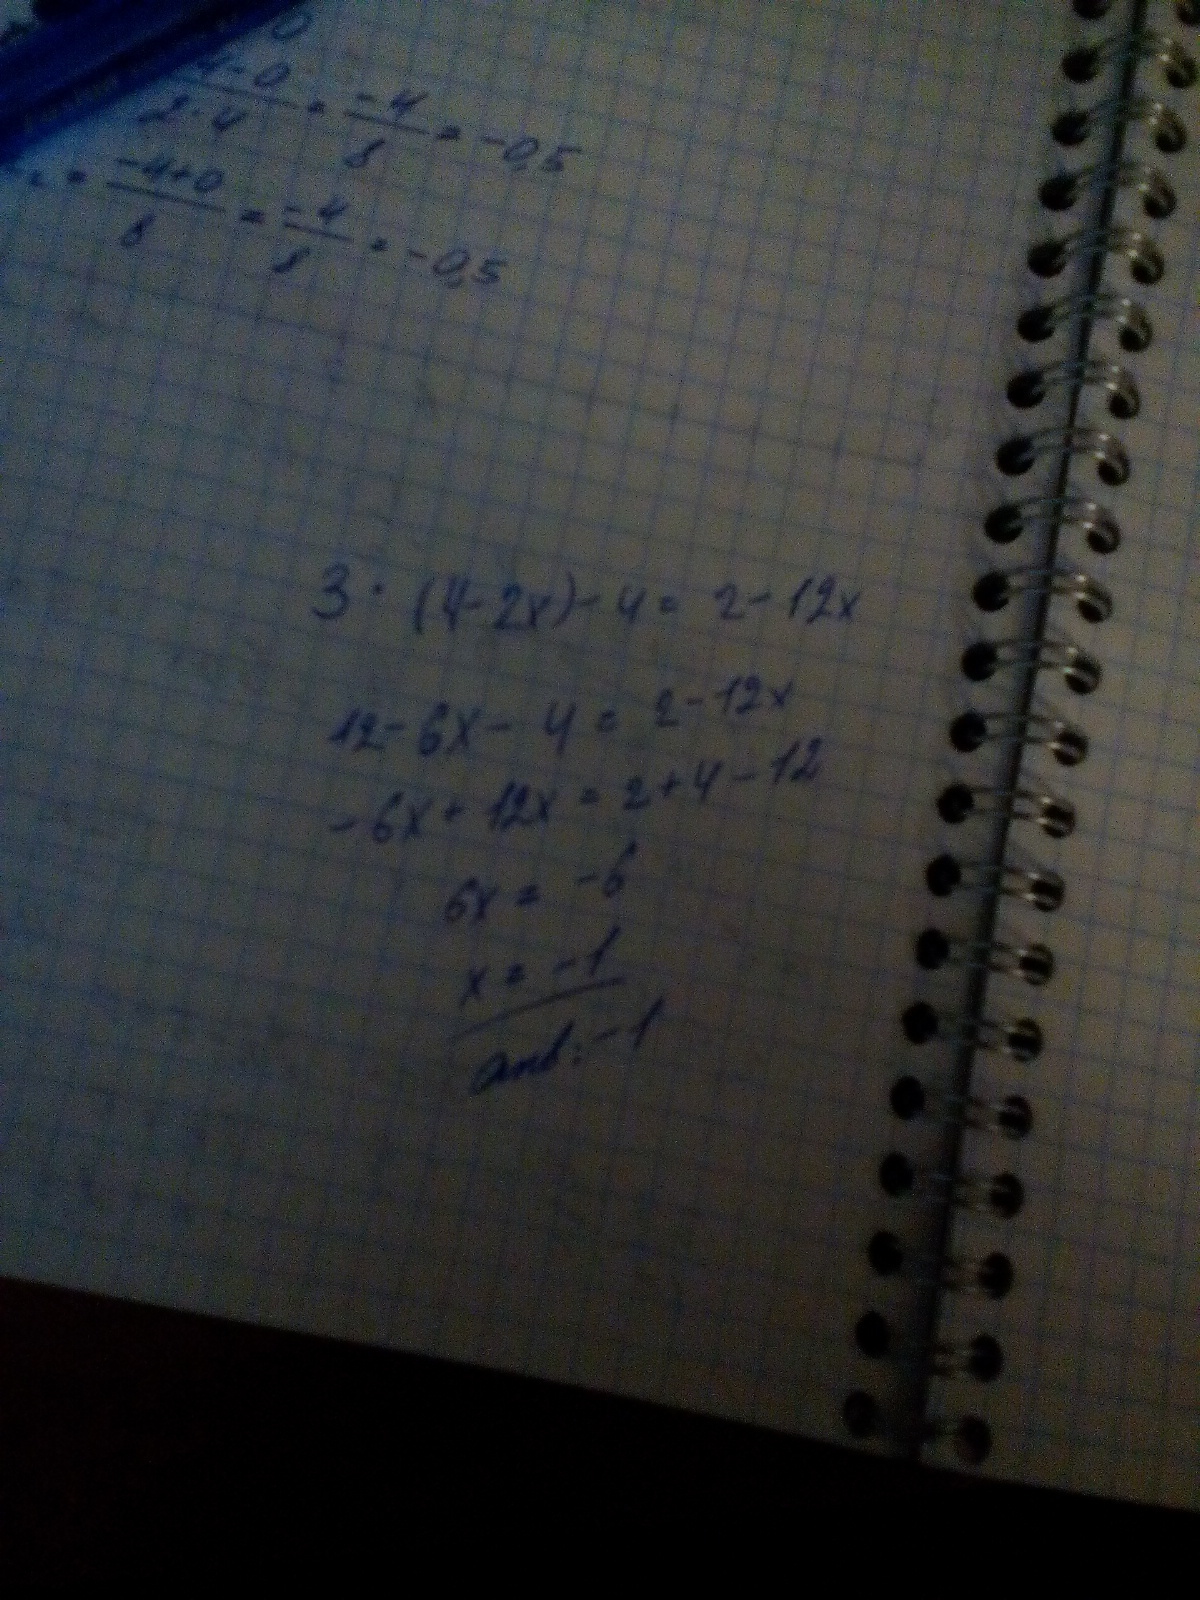 0
-4-0/2·4 = -4/8 = -0,5
= -4+0/8 = -4/8 = -0,5
3 · (4-2x)-4= 2-12x
12-6x-4=2-12x
-6x+12x=2+4-12
6x= -6
x= -1
отв:-1